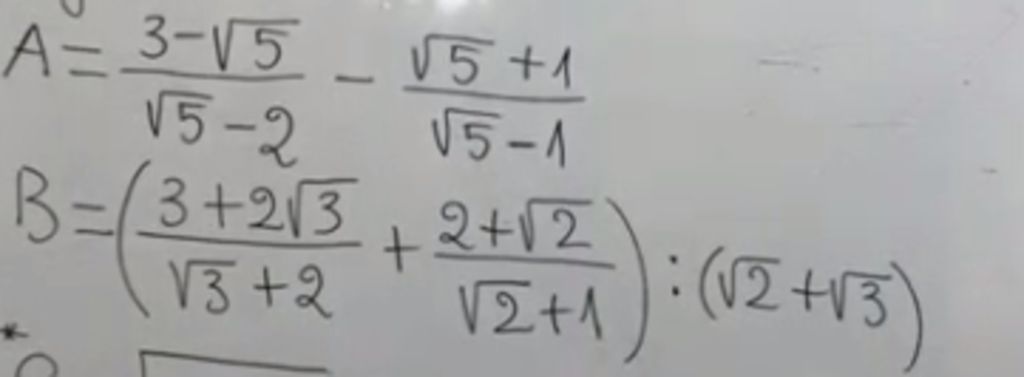 A = \frac{3-\sqrt{5}}{\sqrt{5}-2} - \frac{\sqrt{5}+1}{\sqrt{5}-1}
B = \left(\frac{3+2\sqrt{3}}{\sqrt{3}+2} + \frac{2+\sqrt{2}}{\sqrt{2}+1}\right) : (\sqrt{2}+\sqrt{3})
*